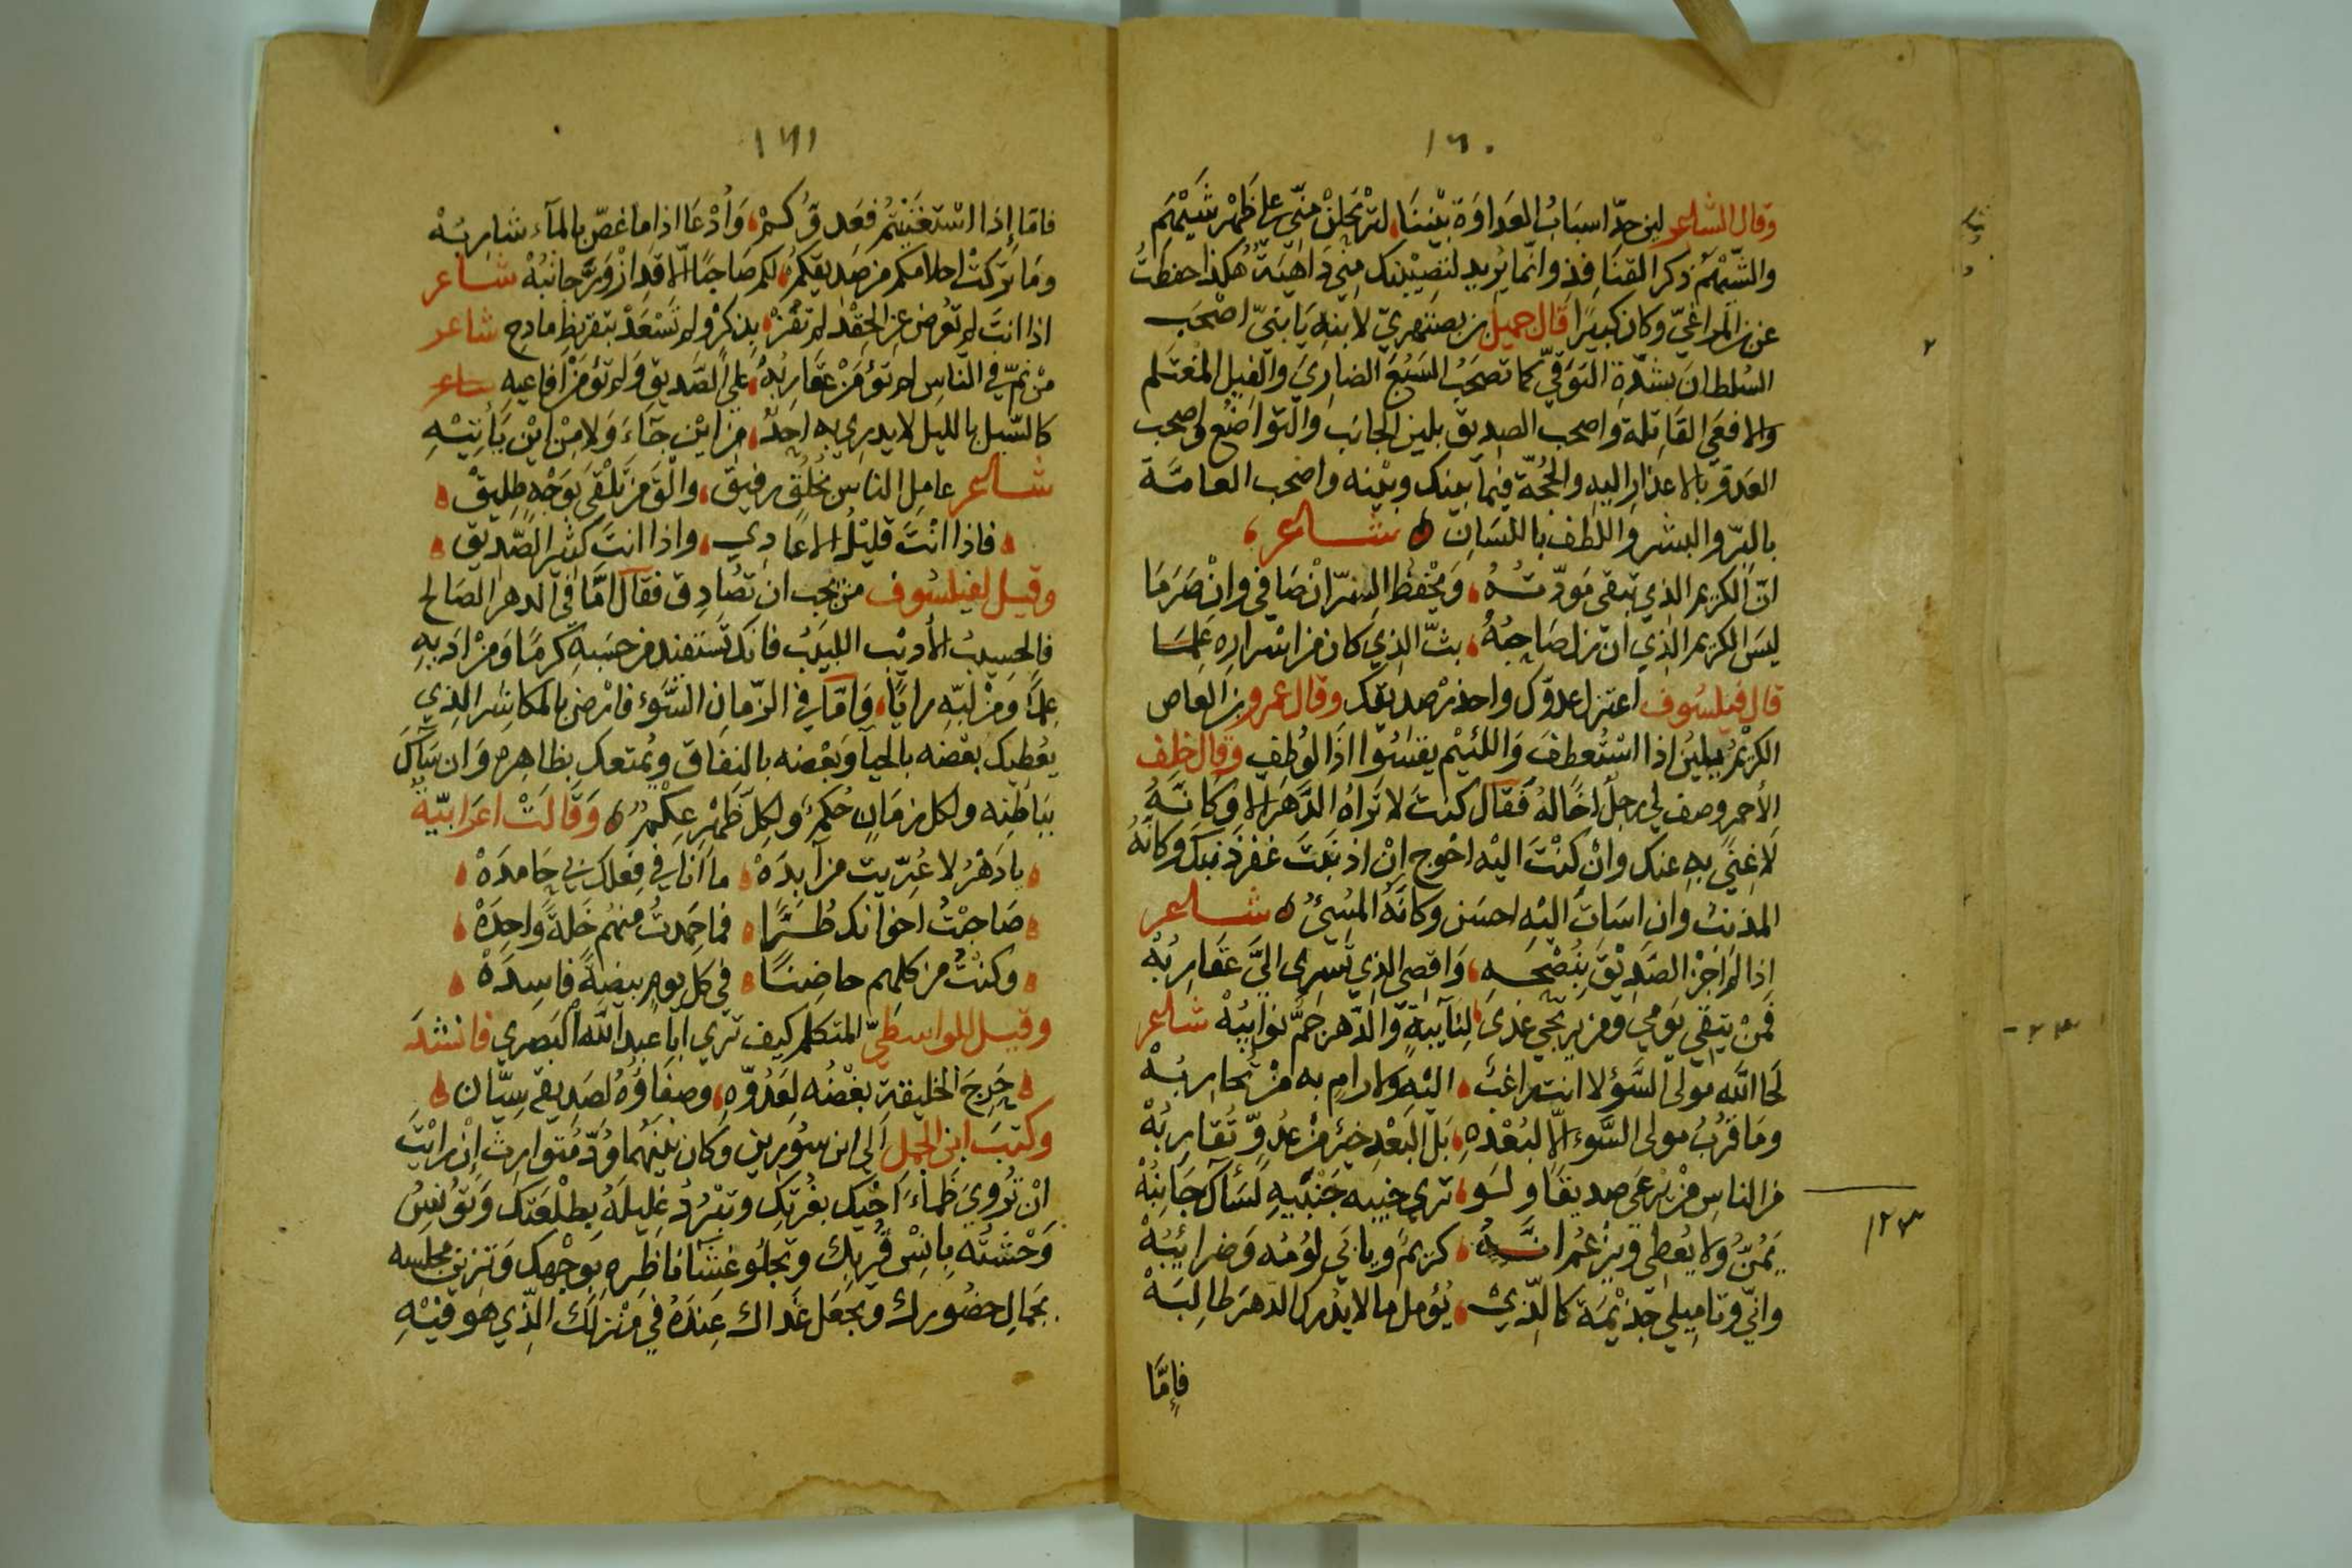 ١٦٠
وقال الشاعر لين جدّ اسبابُ العَداوَة بَيْننَا لترتحلنْ منّي على ظهر شَيْهَم
والشّيْهَم ذكر القنافِذ وانّما يُريد لتصيبنك منّي دَاهِيَة هكذا حفظتُ
عن المراغيّ وكان كبيرًا قال جميل بصبهريّ لابنِهِ يَا بنيّ اصْحَب
السُلطانَ بشدّة التوَقّي كما تصحَبُ السَبُعَ الضارِيَ والفِيل المُغتَلم
والافعَى القَاتلة وَاصحب الصديق بلين الجانب والتواضُع واصحب
العَدوّ بالاعذار اليهِ والحُجّة فيما بينك وبيْنه واصْحب العامَّة
بالبِرّ والبشر واللطف باللسَان شاعر
انّ الكريم الذي تبقى مَودّتُهُ وَيحْفظ السِرّ انْ صَافى وانْ صَرَمَا
ليسَ الكريم الذي ان زل صَاحِبُهُ بثّ الذي كان من اسْراره عَلمَا
قال فيلسُوف اعتزل عدوّك واحذر صديقك وقال عمرو بن العاص
الكرِيْمُ يَلينُ اذا اسْتُعطفَ وَاللئيْم يَقسُوا اذا لوُطف وقال خلف
الأحمر وصف لي رجلٌ اخًا لهُ فَقالَ كنتَ لا تَراهُ الدَّهرَ الا وكانّهُ
لا غِنًى بهِ عنك وانْ كنْتَ اليْه احْوج انْ اذنبتَ غفرَ ذنبَك وكانّهُ
المذنبُ وان اسَاتَ اليْه احسَن وكانّهُ المُسيُ شاعر
اذا لم اجْز الصَدِيْقَ بِنُصْحِهِ وَاقصِي الذي تَسرِي اليَّ عَقارِبُهْ
فمَنْ يتقي يَومِي ومن يرتجي غدى لنايبةٍ والدّهر جمٌّ نَوايبُهْ شاعر
لَحَا اللّه مولى السَّوْء لا انت راغبٌ اليْهِ ولا رامٍ به مَنْ تُحاربُهْ
ومَا قُرْبُ مولى السَّوء الّا لبُعْدهِ بَل البُعْد خيرٌ مِنْ عدُوٍّ تُقارِبُهْ
من الناس من يَرْعَى صديقًا ولو ترى خبيبه جَنْبَيهِ لسَآك جَانِبُهْ
يَمُنّ ولا يُعْطِي ويَزْعُم انّهُ كريمٌ ويابَى لؤمُه وَضرائبُهْ
وانّي وتامِيلي جَذيْمَة كالّذيْ يُؤمل ما لا يُدْرك الدّهرَ طالِبُهْ
فإِمَّا
١٢٣
١٦١
فامّا إذا اسْتغنَيْتُم فعَدوّكمْ وَاُدْعَا اذا ما غصّ بالماء شاربُهْ
ومَا تركتْ احلامكم من صَديقكمْ لكم صَاحِبًا الّا قد ازْوَرّ جانبُهْ شاعر
اذا انتَ لم تُعرض عن الحِقْد لم تفُزْ بذكرٍ ولم تَسْعَدْ بتقريظِ مادح شاعر
مَنْ نمّ في الناس لم تؤمَنْ عقاربُهُ على الصَّديق ولم تؤمَنْ افاعيه شاعر
كالسّيل بالليل لا يدري به احَدٌ من ايْن جآءَ وَلا مِنْ ايْن يَأتِيْهِ
شاعر عامِل الناس بخُلُقٍ رفيق والقَ من تلْقَى بوَجْهٍ طليقْ
فاذا انْتَ قليْلُ الاعادِي واذا انتَ كثيرُ الصّديق
وقيل لفيلسُوف من يجب ان تصُادِق فقال امّا في الدهر الصالح
فالحسيبُ الأديْب اللبيب فانك تستفيد من حسَبهِ كرمًا وَمنْ ادَبهِ
عِلمًا وَمنْ لُبّهِ رايًا وَامّا في الزمان السّوْء فارْضَ بالمكاشر الذي
يعُطيك بعْضه بالحيآ وَبعْضه بالنفاق ويُمتعك بظاهِره وَان سَآكَ
بباطِنه ولكل زمَانٍ حُكمٌ ولكل ظهْر عِكْمٌ وَقالَتْ اعَرابيّةٌ
يادَهْرُ لا عُرّيت من آبدَهْ ما انا في فِعلك بي حَامدَهْ
صَاحبْتُ اخوانك طُرًّا فما حَمِدتُ منهُم خَلةً وَاحِدَهْ
وكنتُ من كلهم حاضِنًا في كل يومٍ بيضةً فاسِدَهْ
وقيل للواسطيّ المتكلم كيف ترى ابا عبد اللّه البَصري فانشدَ
حَرِجَ الخليقة بغْضُه لعَدُوّهِ وصفاؤهُ لصَديقه سِيّان
وكتبَ ابن الجمل الى ابن سُورين وكان بيْنهُما وُدّ مُتوارثٌ اِنْ رايْتَ
انْ تُروِيَ ظمأ اَخيْك بقُرْبِك وتبْرُدُ غليلهُ بطلْعَتك وَتؤنسُ
وَحْشَتُه بانْس قُربك وتجلُو غشَآ ناظرِه بوَجْهك وَتزين مجلسه
بجمالِ حضُورك وتجعَل غداك عِندَهُ في منْزلك الذّي هو فيْهِ